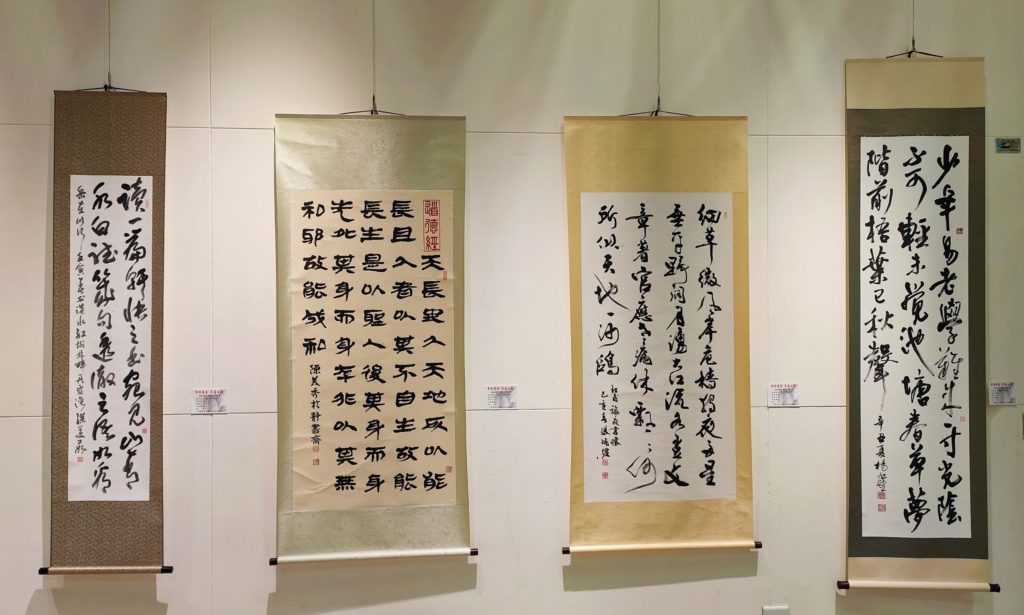 少年易老學難成一寸光陰
不可輕未覺池塘春草夢
階前梧葉已秋聲
辛丑夏楊
細草微风岸危樯獨夜舟星
垂平野阔月湧大江流名岂文
章著官應老病休飘〻何
所似天地一沙鸥
杜甫旅夜書懷
己亥
道德經
天長地久天地所以能
長且久者以其不自生故能
長生是以聖人後其身而身
先外其身而身存非以其無
私邪故能成私
於靜書齋
读一篇轩快之书宛见山青
水白聽幾句透徹之语如看
岳立川行 壬寅